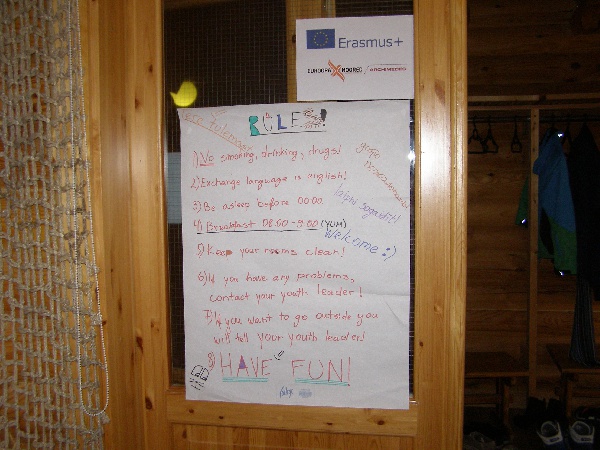 Erasmus+
EUROOPA NOORED
ARCHIMEDES
Tere Tulemast
RULES!
1) No smoking, drinking, drugs!
2) Exchange language is english!
3) Be asleep before 00.00
4) Breakfast 08.00-9.00 (YUM)
Welcome :)
5) Keep your rooms clean!
6) If you have any problems,
contact your youth leader!
7) If you want to go outside you
will tell your youth leader!
8) HAVE FUN!